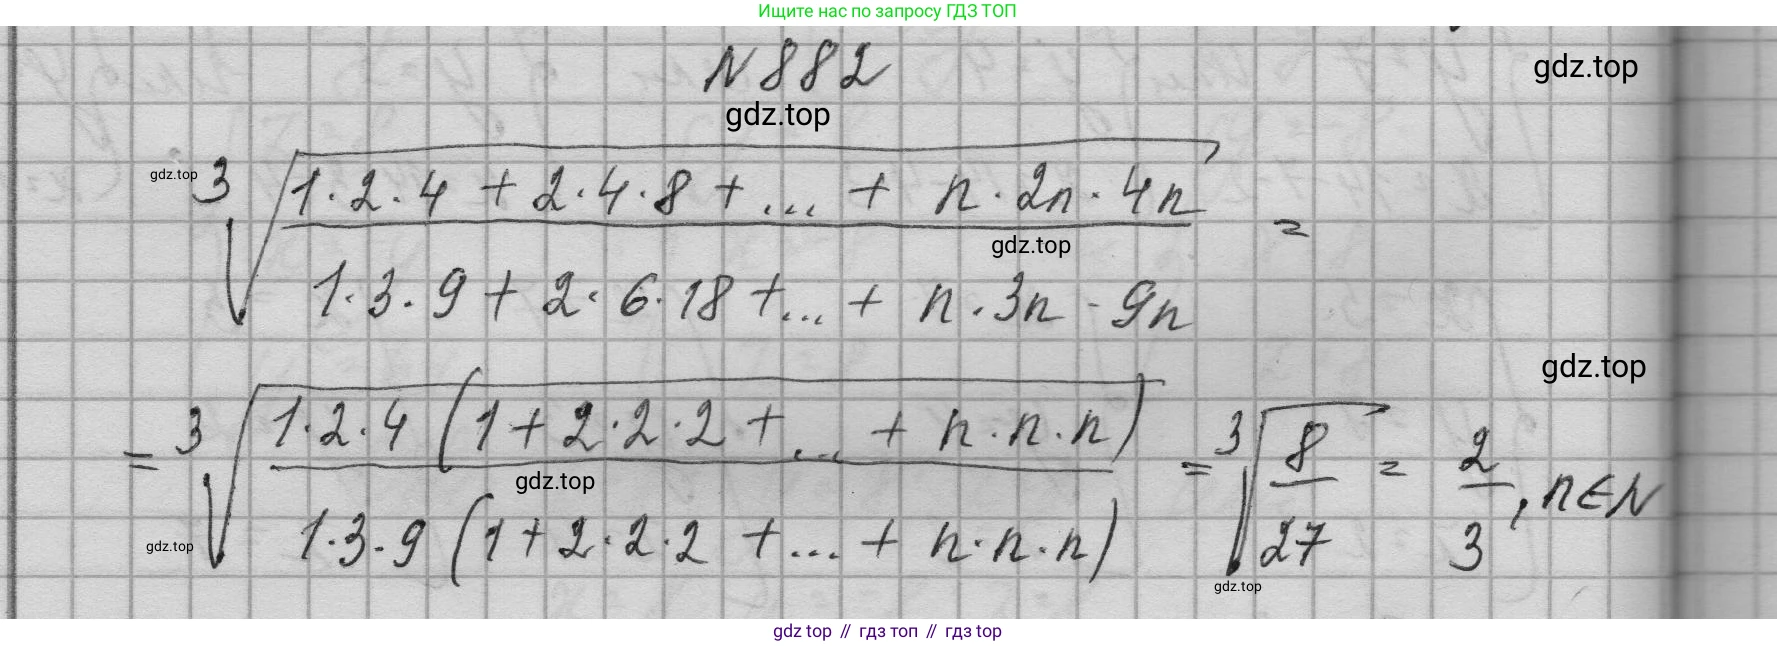 Ищите нас по запросу ГДЗ ТОП
N 882
gdz.top
gdz.top
gdz.top
∛((1·2·4 + 2·4·8 + ... + n·2n·4n) / (1·3·9 + 2·6·18 + ... + n·3n·9n)) =
gdz.top
gdz.top
= ∛((1·2·4 (1 + 2·2·2 + ... + n·n·n)) / (1·3·9 (1 + 2·2·2 + ... + n·n·n))) = ∛(8/27) = 2/3, n∈N
gdz.top
gdz.top
gdz.top
gdz top // гдз топ // gdz top